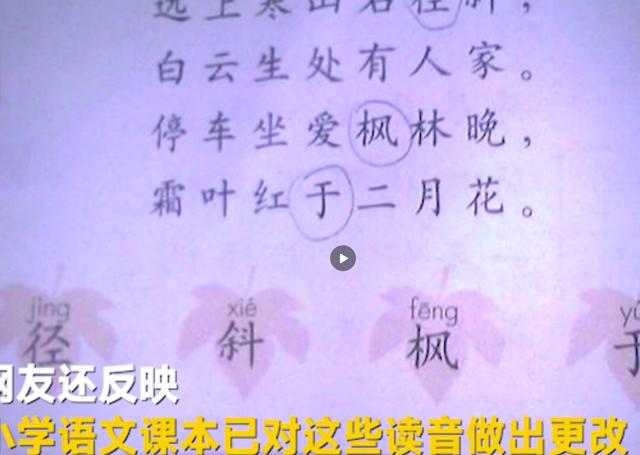 远上寒山石径斜，
白云生处有人家。
停车坐爱枫林晚，
霜叶红于二月花。
jìng xié fēng yú
径 斜 枫 于
网友还反映
小学语文课本已对这些读音做出更改